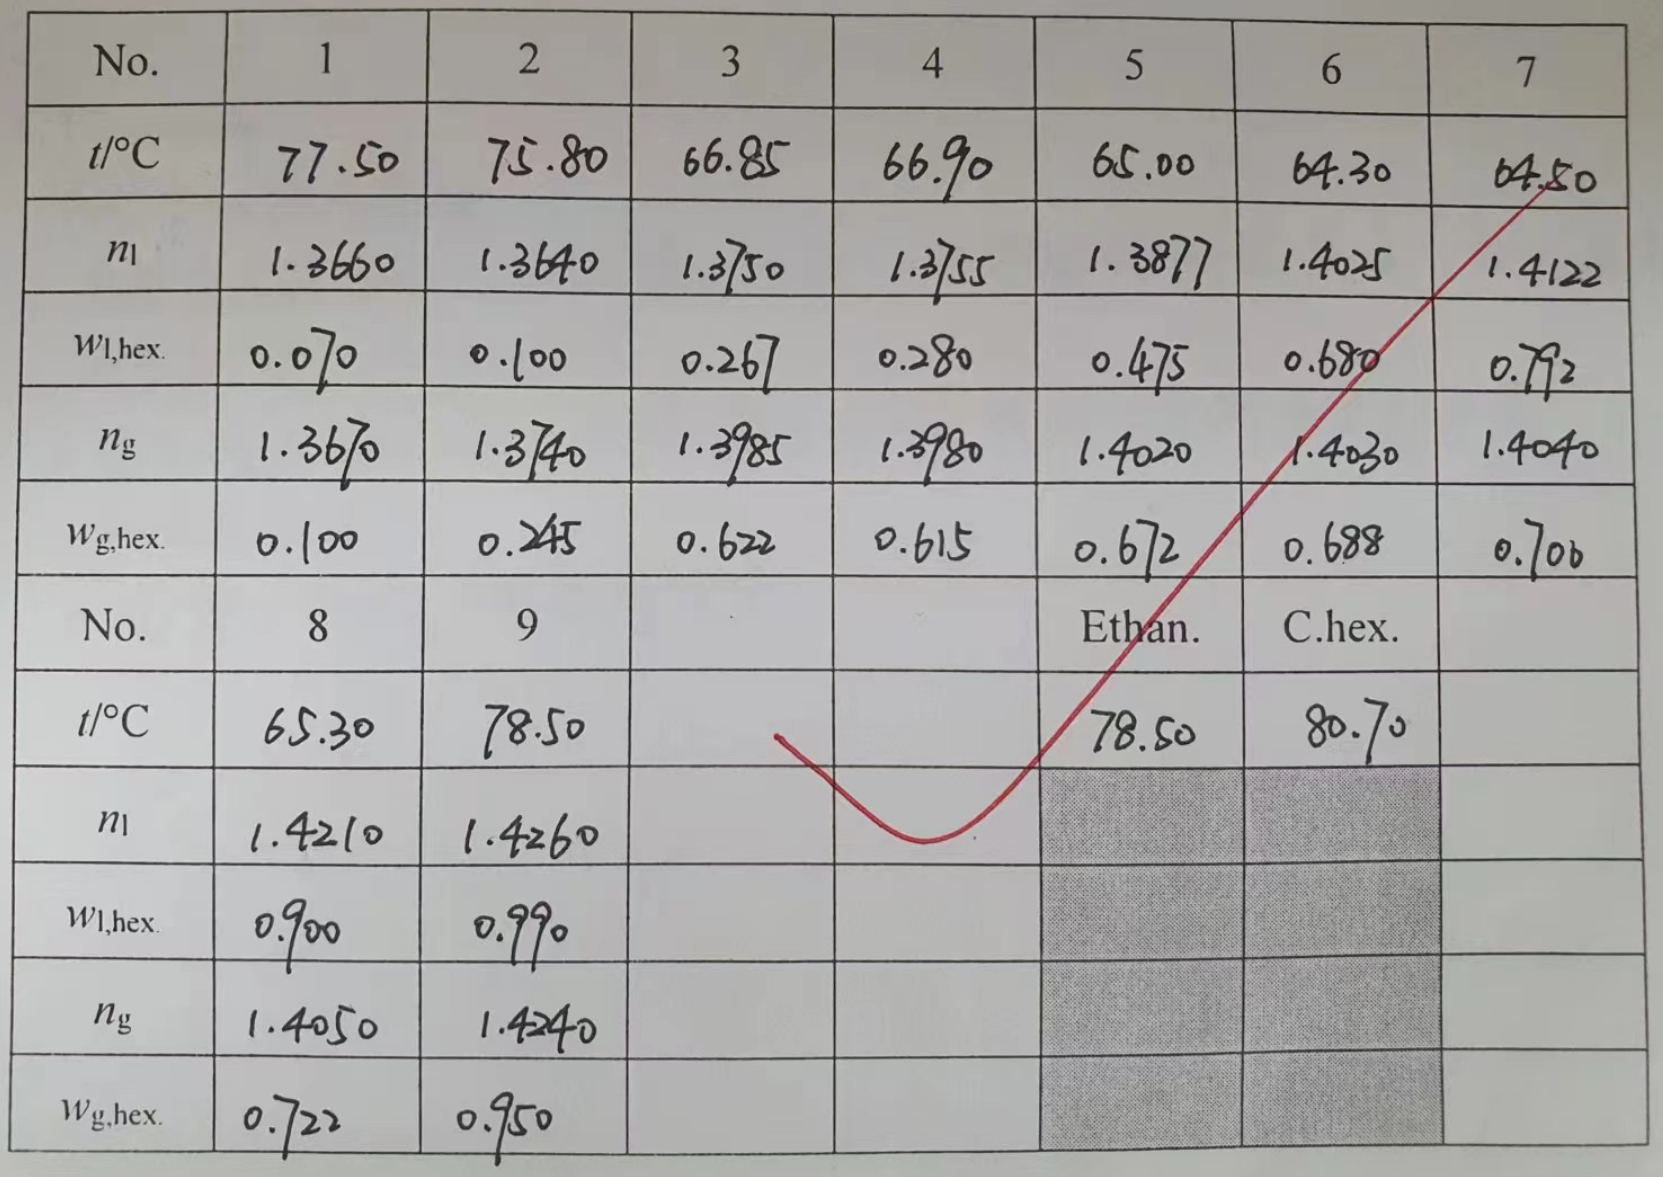 No. 1 2 3 4 5 6 7
t/°C 77.50 75.80 66.85 66.90 65.00 64.30 64.50
n_l 1.3660 1.3640 1.3750 1.3755 1.3877 1.4025 1.4122
w_l,hex. 0.070 0.100 0.267 0.280 0.475 0.680 0.792
n_g 1.3670 1.3740 1.3985 1.3980 1.4020 1.4030 1.4040
w_g,hex. 0.100 0.245 0.622 0.615 0.672 0.688 0.706
No. 8 9 Ethan. C.hex.
t/°C 65.30 78.50 78.50 80.70
n_l 1.4210 1.4260
w_l,hex. 0.900 0.990
n_g 1.4050 1.4240
w_g,hex. 0.722 0.950